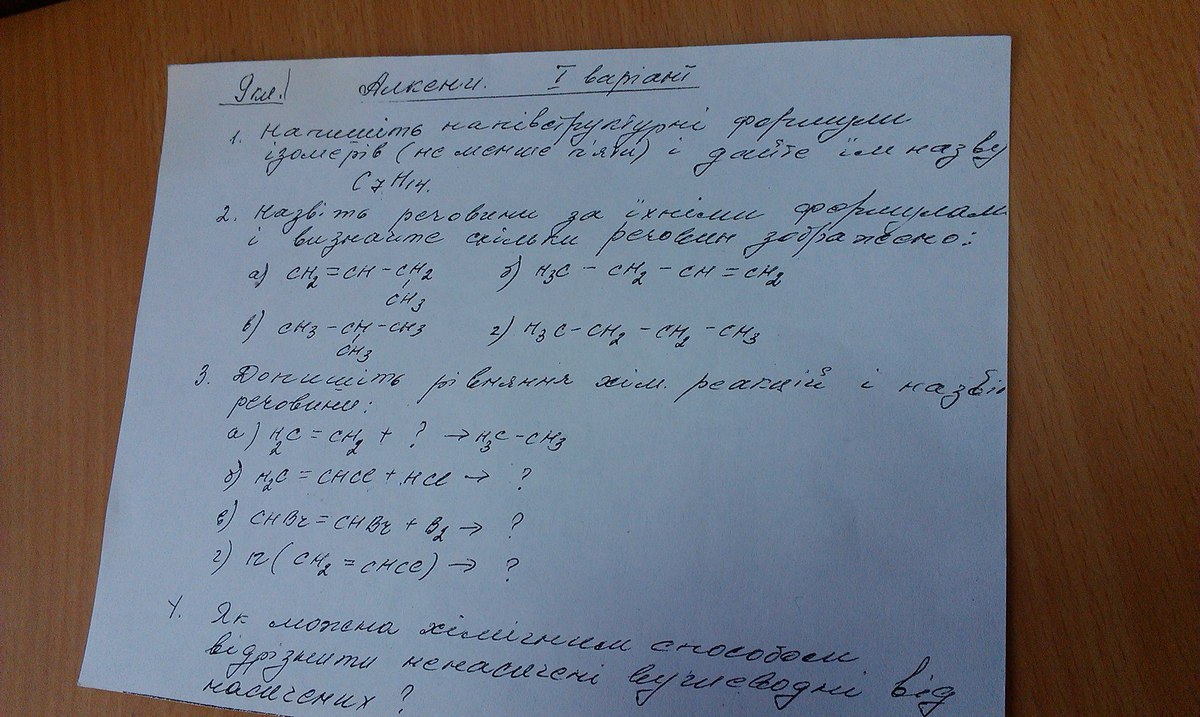 9 кл. Алкени. I варіант
1. Напишіть напівструктурні формули
ізомерів (не менше п'яти) і дайте їм назву
C7H14.
2. Назвіть речовини за їхніми формулам
і визначте скільки речовин зображено:
а) CH2=CH-CH2 б) H3C-CH2-CH=CH2
CH3
в) CH3-CH-CH3 г) H3C-CH2-CH2-CH3
CH3
3. Допишіть рівняння хім. реакцій і назвіть
речовини:
а) H2C=CH2 + ? → H3C-CH3
б) H2C=CHCl + HCl → ?
в) CHBr=CHBr + B2 → ?
г) n(CH2=CHCl) → ?
4. Як можна хімічним способом
відрізнити ненасичені вуглеводні від
насичених?